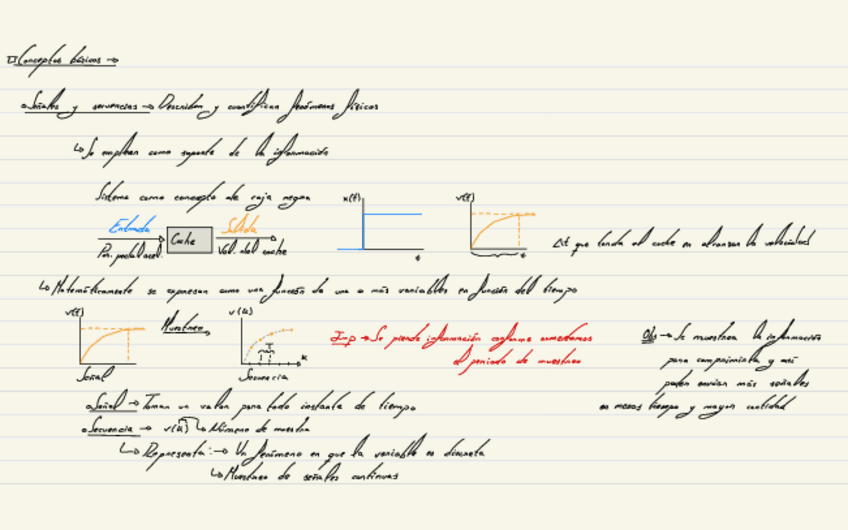 Conceptos básicos →
Señales y secuencias → Describen y cuantifican fenómenos físicos
↳ Se emplean como soporte de la información
Sistema como concepto de caja negra
x(t)
v(t)
Entrada
Coche
Salida
Pos. pedal acel.
Vel. del coche
t
t
Δt que tarda el coche en alcanzar la velocidad
↳ Matemáticamente se expresan como una función de una o más variables en función del tiempo
v(t)
Muestreo
v(k)
T
k
Señal
Secuencia
Imp → Se pierde información conforme aumentamos
el periodo de muestreo
Obs → Se muestrea la información
para comprimirla y así
poder enviar más señales
en menos tiempo y mayor cantidad
Señal → Toman un valor para todo instante de tiempo
Secuencia → v(k) ↳ Número de muestra
↳ Representa: → Un fenómeno en que la variable es discreta
↳ Muestreo de señales continuas